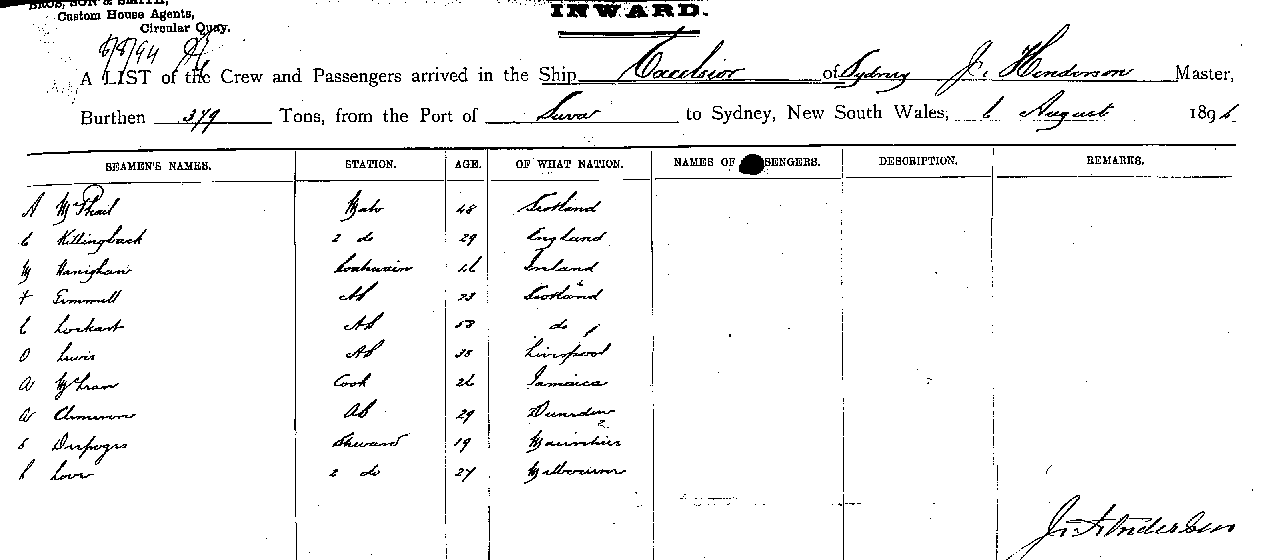 BROS, SON & SMITH,
Custom House Agents,
Circular Quay.
INWARD.
A LIST of the Crew and Passengers arrived in the Ship Excelsior of Sydney J. Henderson Master,
Burthen 379 Tons, from the Port of Suva to Sydney, New South Wales, 6 August 189
SEAMEN'S NAMES. STATION. AGE. OF WHAT NATION. NAMES OF SENGERS. DESCRIPTION. REMARKS.
A McPhail Mate 48 Scotland
C Killingback 2 do 29 England
M Hanighan Boatswain Ireland
Gemmell AB 23 Scotland
C Lockart AB 53 do
O Lewis AB 35 Liverpool
A Cook 26 Jamaica
A Cameron AB 29 Dunedin
Steward 19 Mauritius
2 do 27 Melbourne
J. Henderson